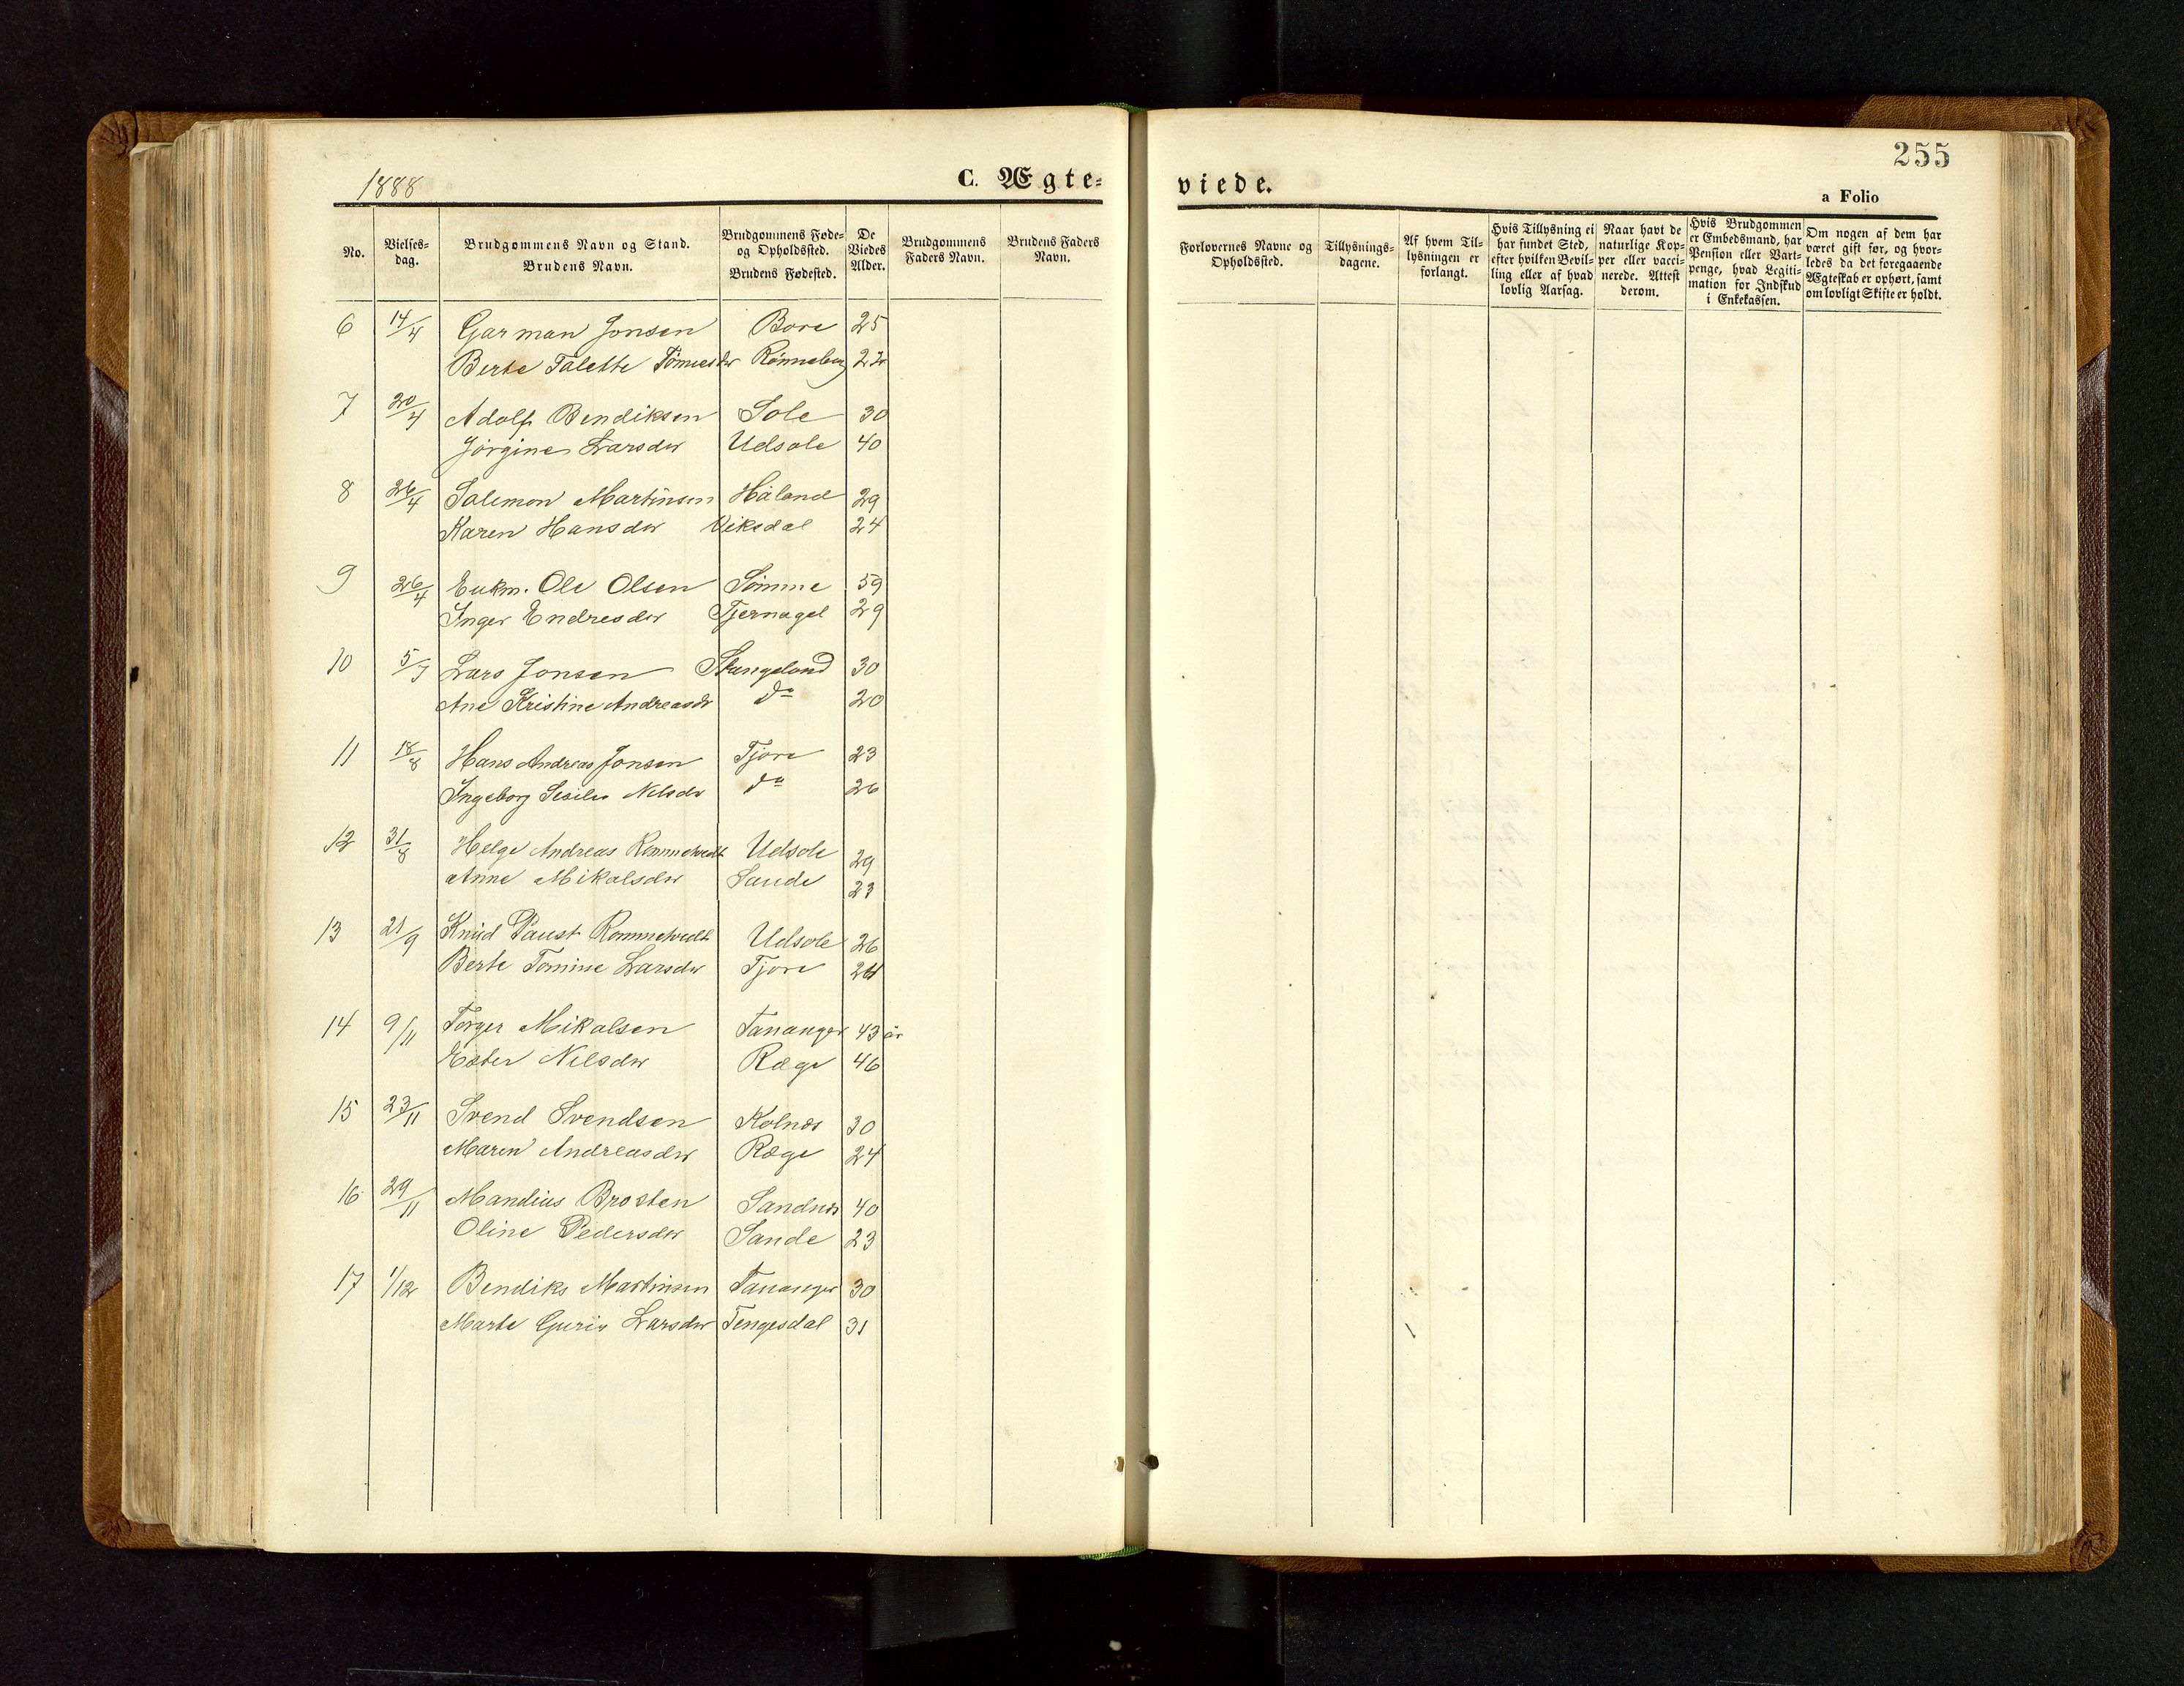 1888
C. Ægte-
viede.
255
a Folio
No.
Vielses-
dag.
Brudgommens Navn og Stand.
Brudens Navn.
Brudgommens Føde-
og Opholdssted.
Brudens Fødested.
De
Viedes
Alder.
Brudgommens
Faders Navn.
Brudens Faders
Navn.
Forlovernes Navne og
Opholdssted.
Tillysnings-
dagene.
Af hvem Til-
lysningen er
forlangt.
Hvis Tillysning ei
har fundet Sted,
efter hvilken Bevil-
ling eller af hvad
lovlig Aarsag.
Naar havt de
naturlige Kop-
per eller vacci-
nerede. Attest
derom.
Hvis Brudgommen
er Embedsmand, har
Pension eller Vart-
penge, hvad Legiti-
mation for Indskud
i Enkekassen.
Om nogen af dem har
været gift før, og hvor-
ledes da det foregaaende
Ægteskab er ophørt, samt
om lovligt Skifte er holdt.
6 14/4 Garman Jonsen Bore 25
Berte Talette Rønneberg
7 20/4 Adolf Bendiksen Sole 30
Jørgine Larsdr Udsole 40
8 26/4 Salemon Martinsen Håland 29
Karen Hansdr Viksdal 24
9 26/4 Enkm. Ole Olsen Sømme 59
Inger Endresdr Tjernagel 29
10 5/7 Lars Jonsen Stangeland 30
Ane Kristine Andreasdr do 20
11 18/8 Hans Andreas Jonsen Tjore 23
Ingeborg Sesilie Nelsdr do 26
12 31/8 Helge Andreas Rommetvedt Udsole 29
Anne Mikalsdr Sande 23
13 21/9 Knud Faust Rommetvedt Udsole 26
Berte Tomine Larsdr Tjore
14 9/11 Torger Mikalsen Tananger 43 år
Ester Nelsdr Ræge 46
15 23/11 Svend Svendsen Kolnes 30
Maren Andreasdr Ræge 24
16 29/11 Mandius Brosten Sandnes 40
Oline Pedersdr Sande 23
17 1/12 Bendiks Martinsen Tananger 30
Marte Guria Larsdr Tengesdal 31